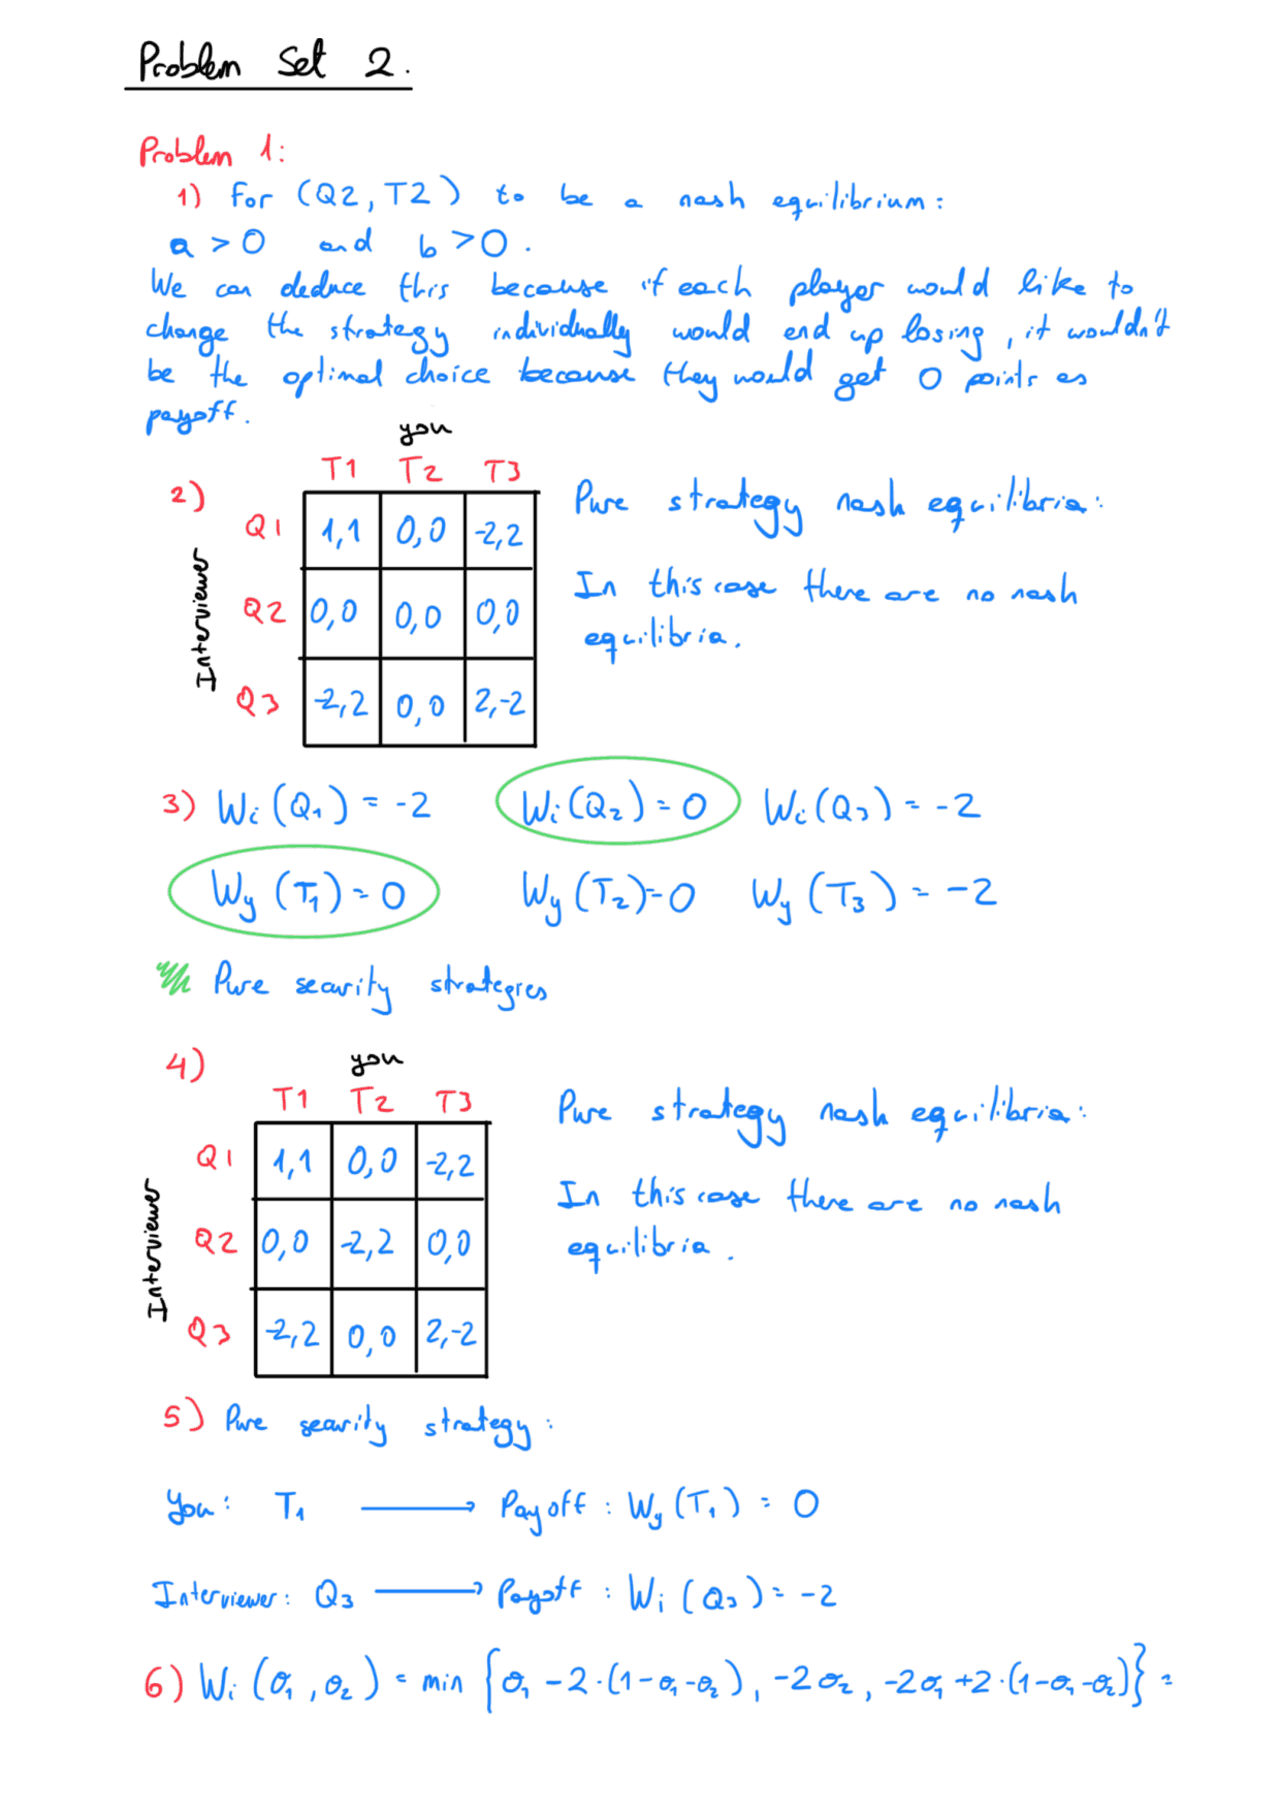 Problem Set 2.
Problem 1:
1) For (Q2, T2) to be a nash equilibrium:
a > 0 and b > 0.
We can deduce this because if each player would like to
change the strategy individually would end up losing, it wouldn't
be the optimal choice because they would get 0 points as
payoff.
you
T1 T2 T3
2)
Interviewer
Q1 1,1 0,0 -2,2
Q2 0,0 0,0 0,0
Q3 -2,2 0,0 2,-2
Pure strategy nash equilibria:
In this case there are no nash
equilibria.
3) Wi(Q1) = -2 Wi(Q2) = 0 Wi(Q3) = -2
Wy(T1) = 0 Wy(T2) = 0 Wy(T3) = -2
Pure security strategies
4)
you
T1 T2 T3
Interviewer
Q1 1,1 0,0 -2,2
Q2 0,0 -2,2 0,0
Q3 -2,2 0,0 2,-2
Pure strategy nash equilibria:
In this case there are no nash
equilibria.
5) Pure security strategy:
You: T1 → Payoff: Wy(T1) = 0
Interviewer: Q3 → Payoff: Wi(Q3) = -2
6) Wi(σ1, σ2) = min {σ1 - 2·(1-σ1-σ2), -2σ2, -2σ1 + 2·(1-σ1-σ2)} =